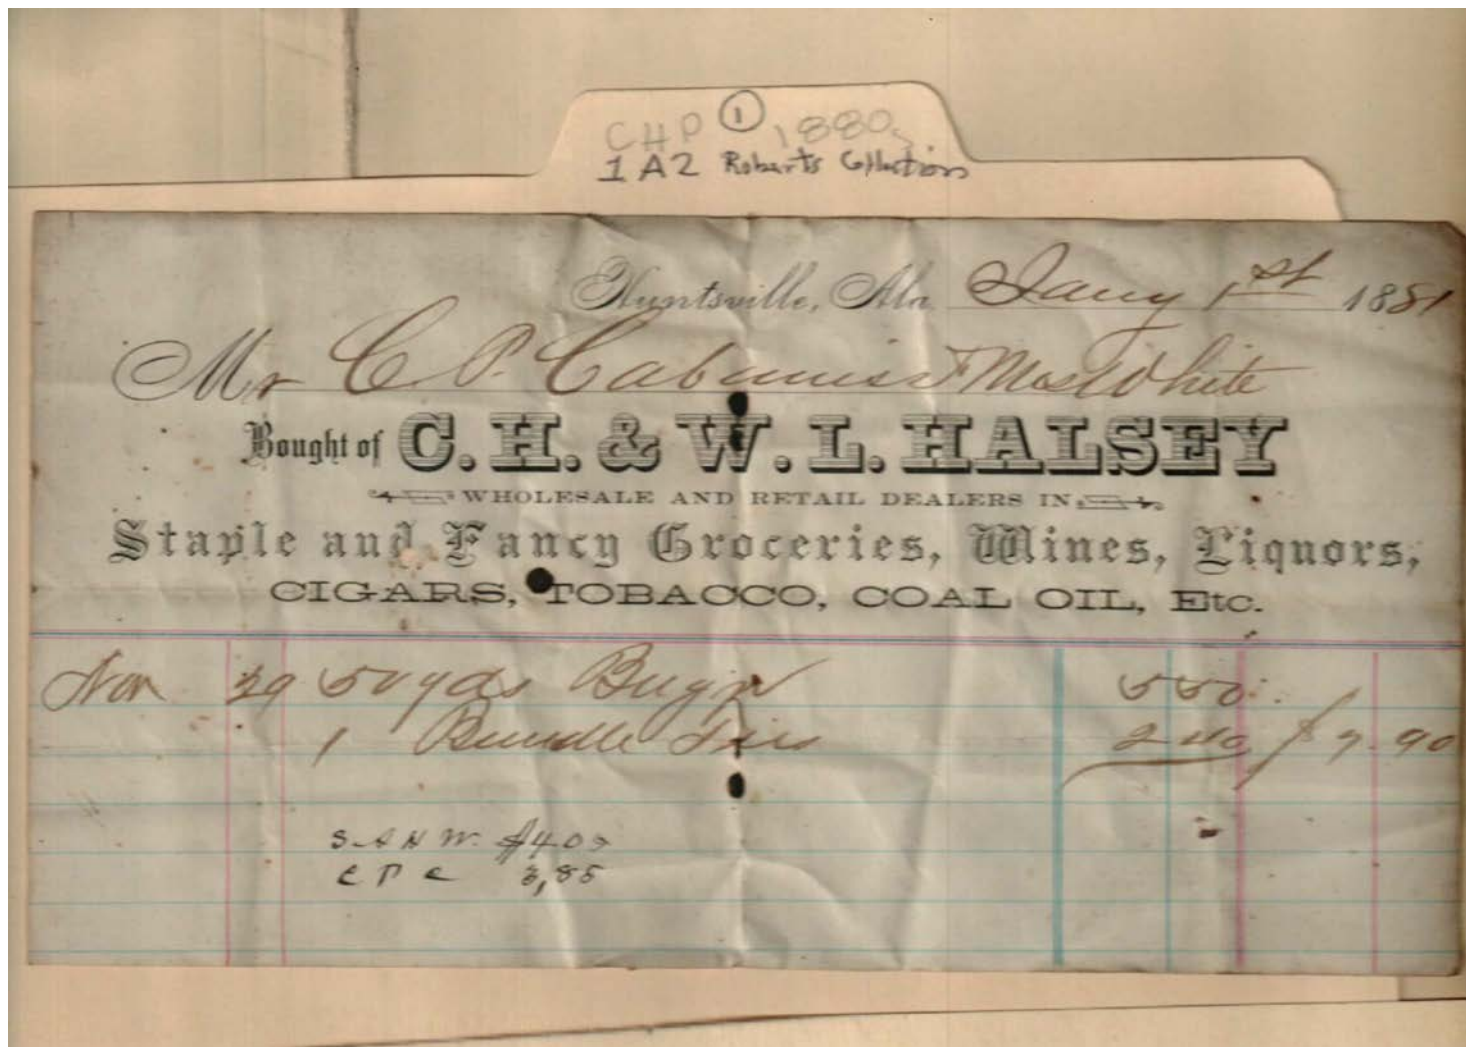 CHP ① 1880s
1A2 Roberts Collection
Huntsville, Ala. Jany 1st 1881
Mr C. P. Cabaniss & Mrs White
Bought of C. H. & W. L. HALSEY
WHOLESALE AND RETAIL DEALERS IN
Staple and Fancy Groceries, Wines, Liquors,
CIGARS, TOBACCO, COAL OIL, Etc.
Nov 29 50 yds Bag'g 5 50
1 Bundle Ties 2 40 $7.90
S. A H W. $4.05
C P C 3,85